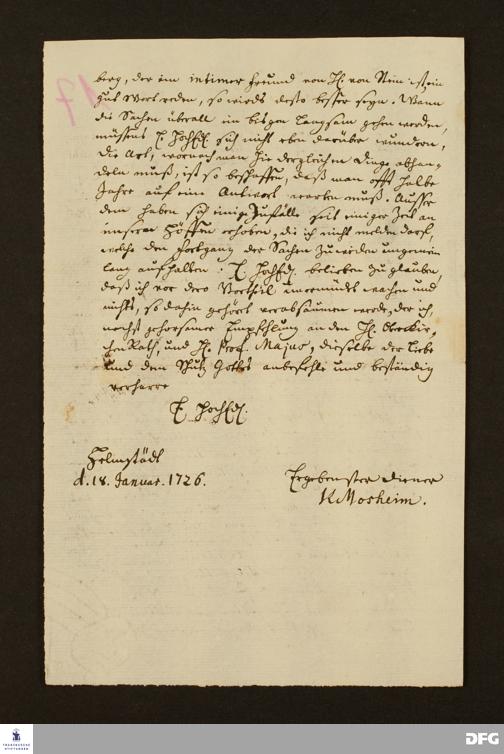 berg, der ein intimer Freund von H. von Stein ist, ein
gut Wort reden, so wirds desto beßer seyn. Wann
die Sachen überall ein bisgen langsam gehen werden,
müßens E. HochEd. sich nicht eben darüber wundern,
die Art, wornach man hie dergleichen Dinge abhan-
deln muß, ist so beschaffen, daß man offt halbe
Jahre auf eine Antwort warten muß. Außer
dem haben sich einige Zufälle seit einiger Zeit an
unseren Höffen erhoben, die ich nicht melden darf,
welche den Fortgang der Sachen zuweilen ungemein
lang aufhalten. E. HochEd. belieben zu glauben,
daß ich vor dero Vortheil unermüdet wachen und
nichts, so dahin gehöret verabsäumen werde, der ich,
nechst gehorsamer Empfehlung an den H.
und H. Prof. Majus, dieselbe der Liebe
und dem Schutz Gottes anbefehle und beständig
verharre
E. HochEd.
Helmstädt
d. 18. Januar. 1726.
Ergebenster Diener
Mosheim.
17
FRANCKESCHE STIFTUNGEN
DFG